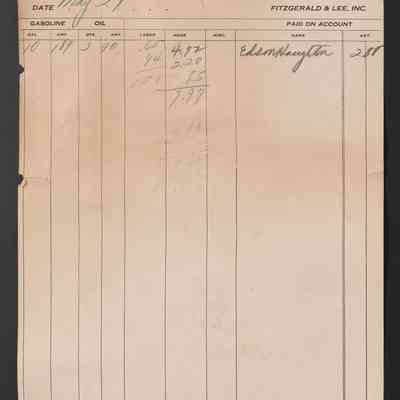 DATE May FITZGERALD & LEE, INC.
GASOLINE OIL PAID ON ACCOUNT
GAL. AMT. QTS. AMT. LABOR MDSE MISC. NAME AMT.
10 189 3 90 .60 4.92 Edson 2.00
94 2.20
85
7.97